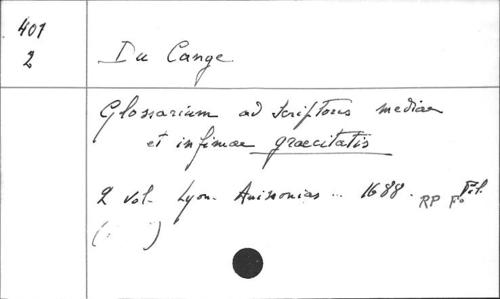 401
2
Du Cange
Glossarium ad scriptores mediae
et infimae graecitatis
2 vol. Lyon. Anissonias ... 1688. RP Fo
( )